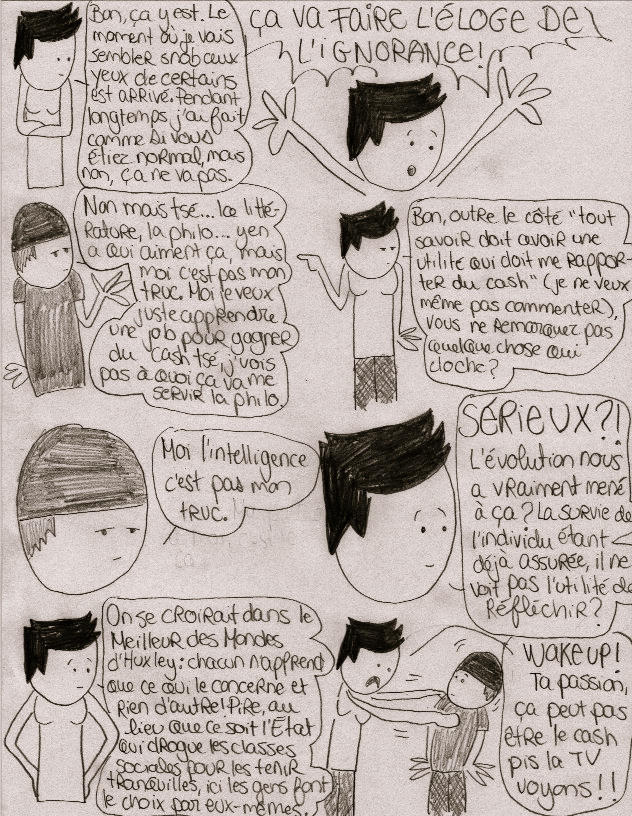 Bon, ça y est. Le
moment où je vais
sembler snob aux
yeux de certains
est arrivé. Pendant
longtemps j'ai fait
comme si vous
étiez normal, mais
non, ça ne va pas.
ÇA VA FAIRE L'ÉLOGE DE
L'IGNORANCE!
Non mais tsé... la litté-
rature, la philo... yen
a qui aiment ça, mais
moi c'est pas mon
truc. Moi je veux
juste apprendre
une job pour gagner
du cash tsé, j'vois
pas à quoi ça va me
servir la philo
Bon, outre le côté "tout
savoir doit avoir une
utilité qui doit me rappor-
ter du cash" (je ne veux
même pas commenter),
vous ne remarquez pas
quelque chose qui
cloche?
Moi l'intelligence
c'est pas mon
truc.
SÉRIEUX?!
L'évolution nous
a vraiment mené
à ça? La survie de
l'individu étant
déjà assurée, il ne
voit pas l'utilité de
Réfléchir?
On se croirait dans le
Meilleur des Mondes
d'Huxley: chacun n'apprend
que ce qui le concerne et
rien d'autre! Pire, au
lieu que ce soit l'État
qui drogue les classes
sociales pour les tenir
tranquilles, ici les gens font
le choix par eux-mêmes.
WAKE UP!
Ta passion,
ça peut pas
être le cash
pis la TV
voyons!!